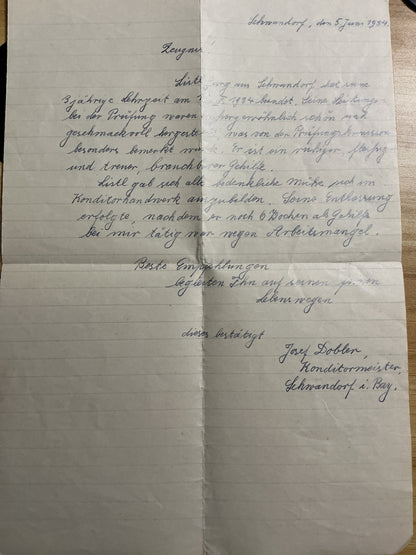 Schwandorf, den 5. Juni 1934.
Zeugnis!
Listl aus Schwandorf hat seine
3jährige Lehrzeit am 1934 beendet. Seine Leistungen
bei der Prüfung waren schön und
geschmackvoll was von der Prüfungskommission
besonders bemerkt wurde. Er ist ein ruhiger, fleißiger
und treuer, brauchbarer Gehilfe.
Listl gab sich alle denkliche Mühe sich im
Konditorhandwerk auszubilden. Seine Entlassung
erfolgte, nachdem er noch 6 Wochen als Gehilfe
bei mir tätig war wegen Arbeitsmangel.
Beste Empfehlungen
begleiten Ihn auf seinen
Lebenswegen
dieses bestätigt
Josef Dobler,
Konditormeister,
Schwandorf i. Bay.